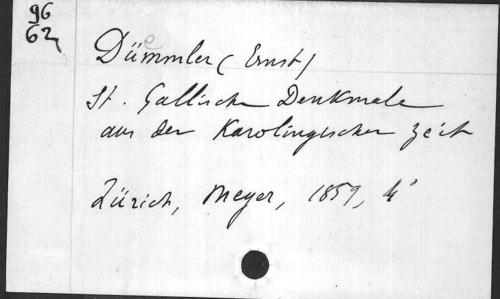 96
62
Dümmler (Ernst)
St. Gallische Denkmale
aus der Karolingischen Zeit
Zürich, Meyer, 1859, 4°